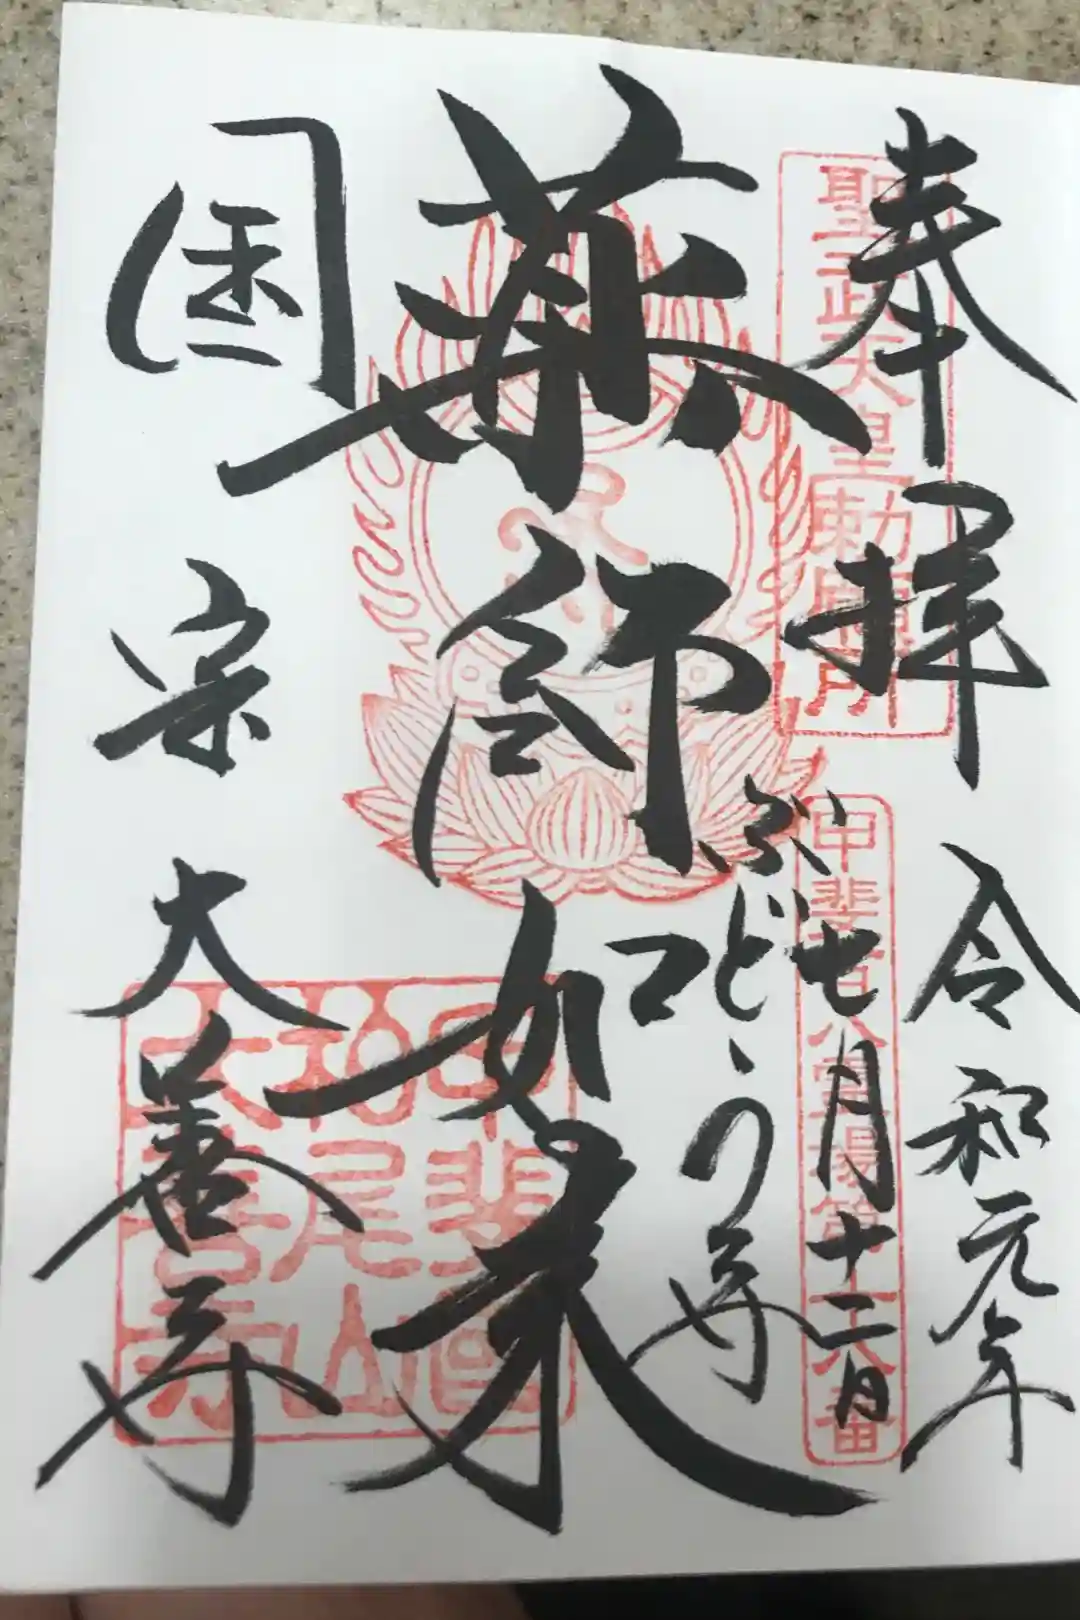 奉拝
令和元年
七月十二日
聖武天皇勅願所
甲斐百八霊場第十八番
薬師如来
ぶどうの寺
国宝
大善寺
甲斐国
柏尾山
大善寺